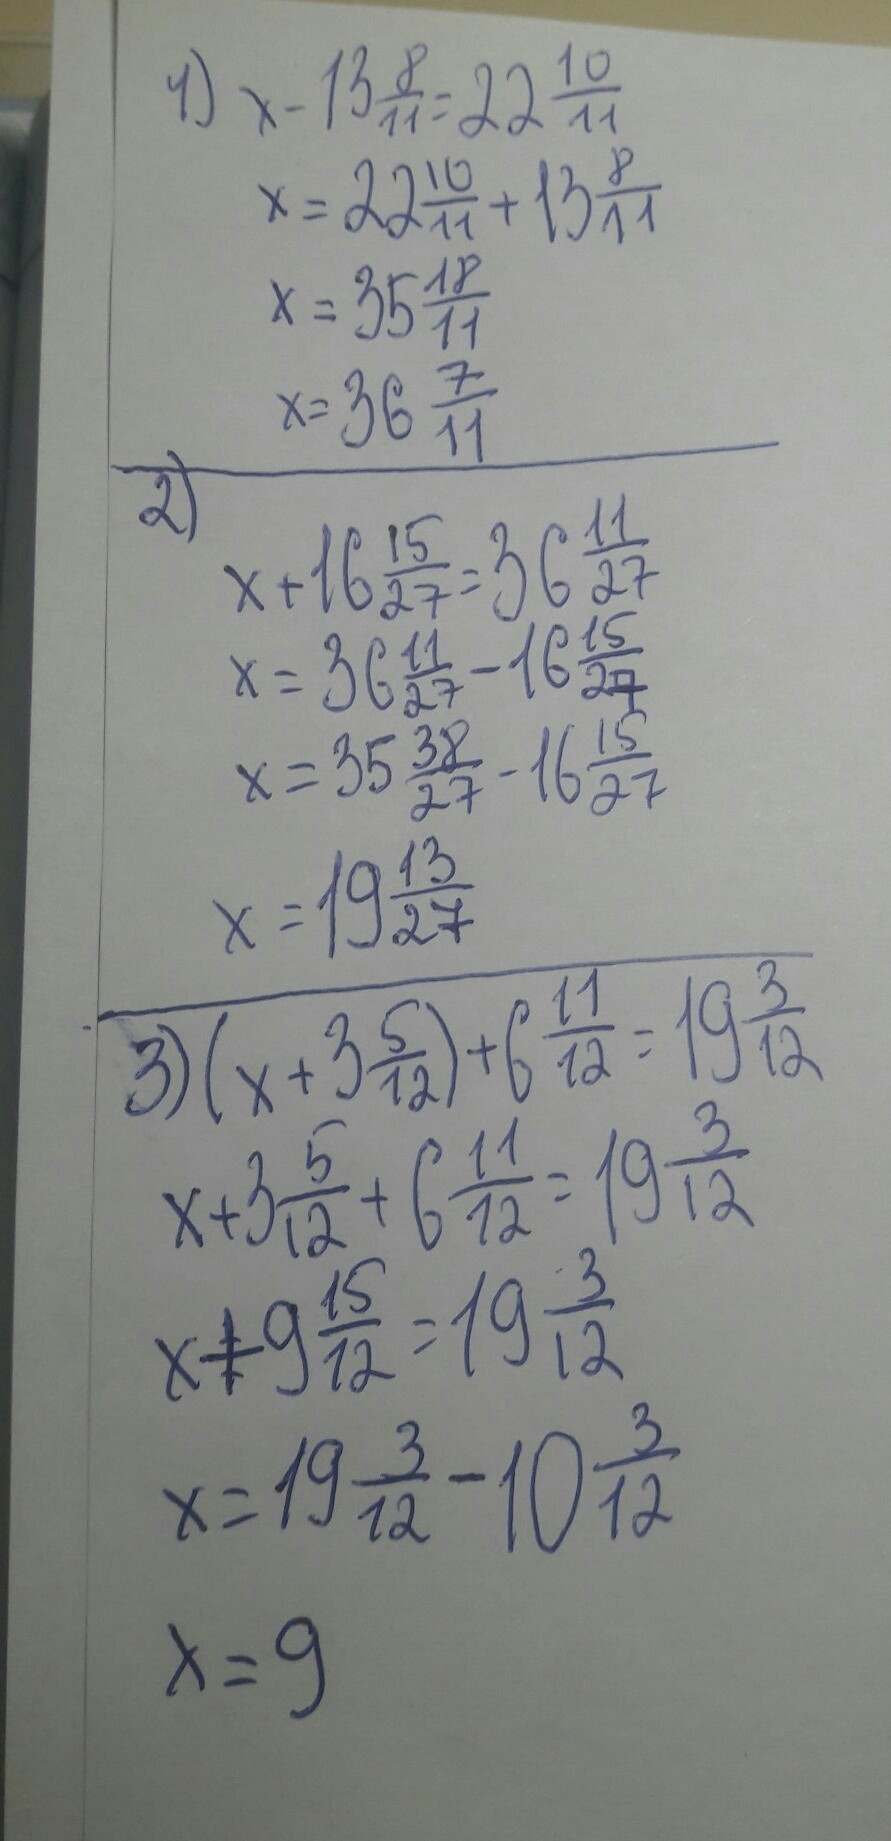 1) x - 13 8/11 = 22 10/11
x = 22 10/11 + 13 8/11
x = 35 18/11
x = 36 7/11
2)
x + 16 15/27 = 36 11/27
x = 36 11/27 - 16 15/27
x = 35 38/27 - 16 15/27
x = 19 13/27
3) (x + 3 5/12) + 6 11/12 = 19 3/12
x + 3 5/12 + 6 11/12 = 19 3/12
x + 9 15/12 = 19 3/12
x = 19 3/12 - 10 3/12
x = 9